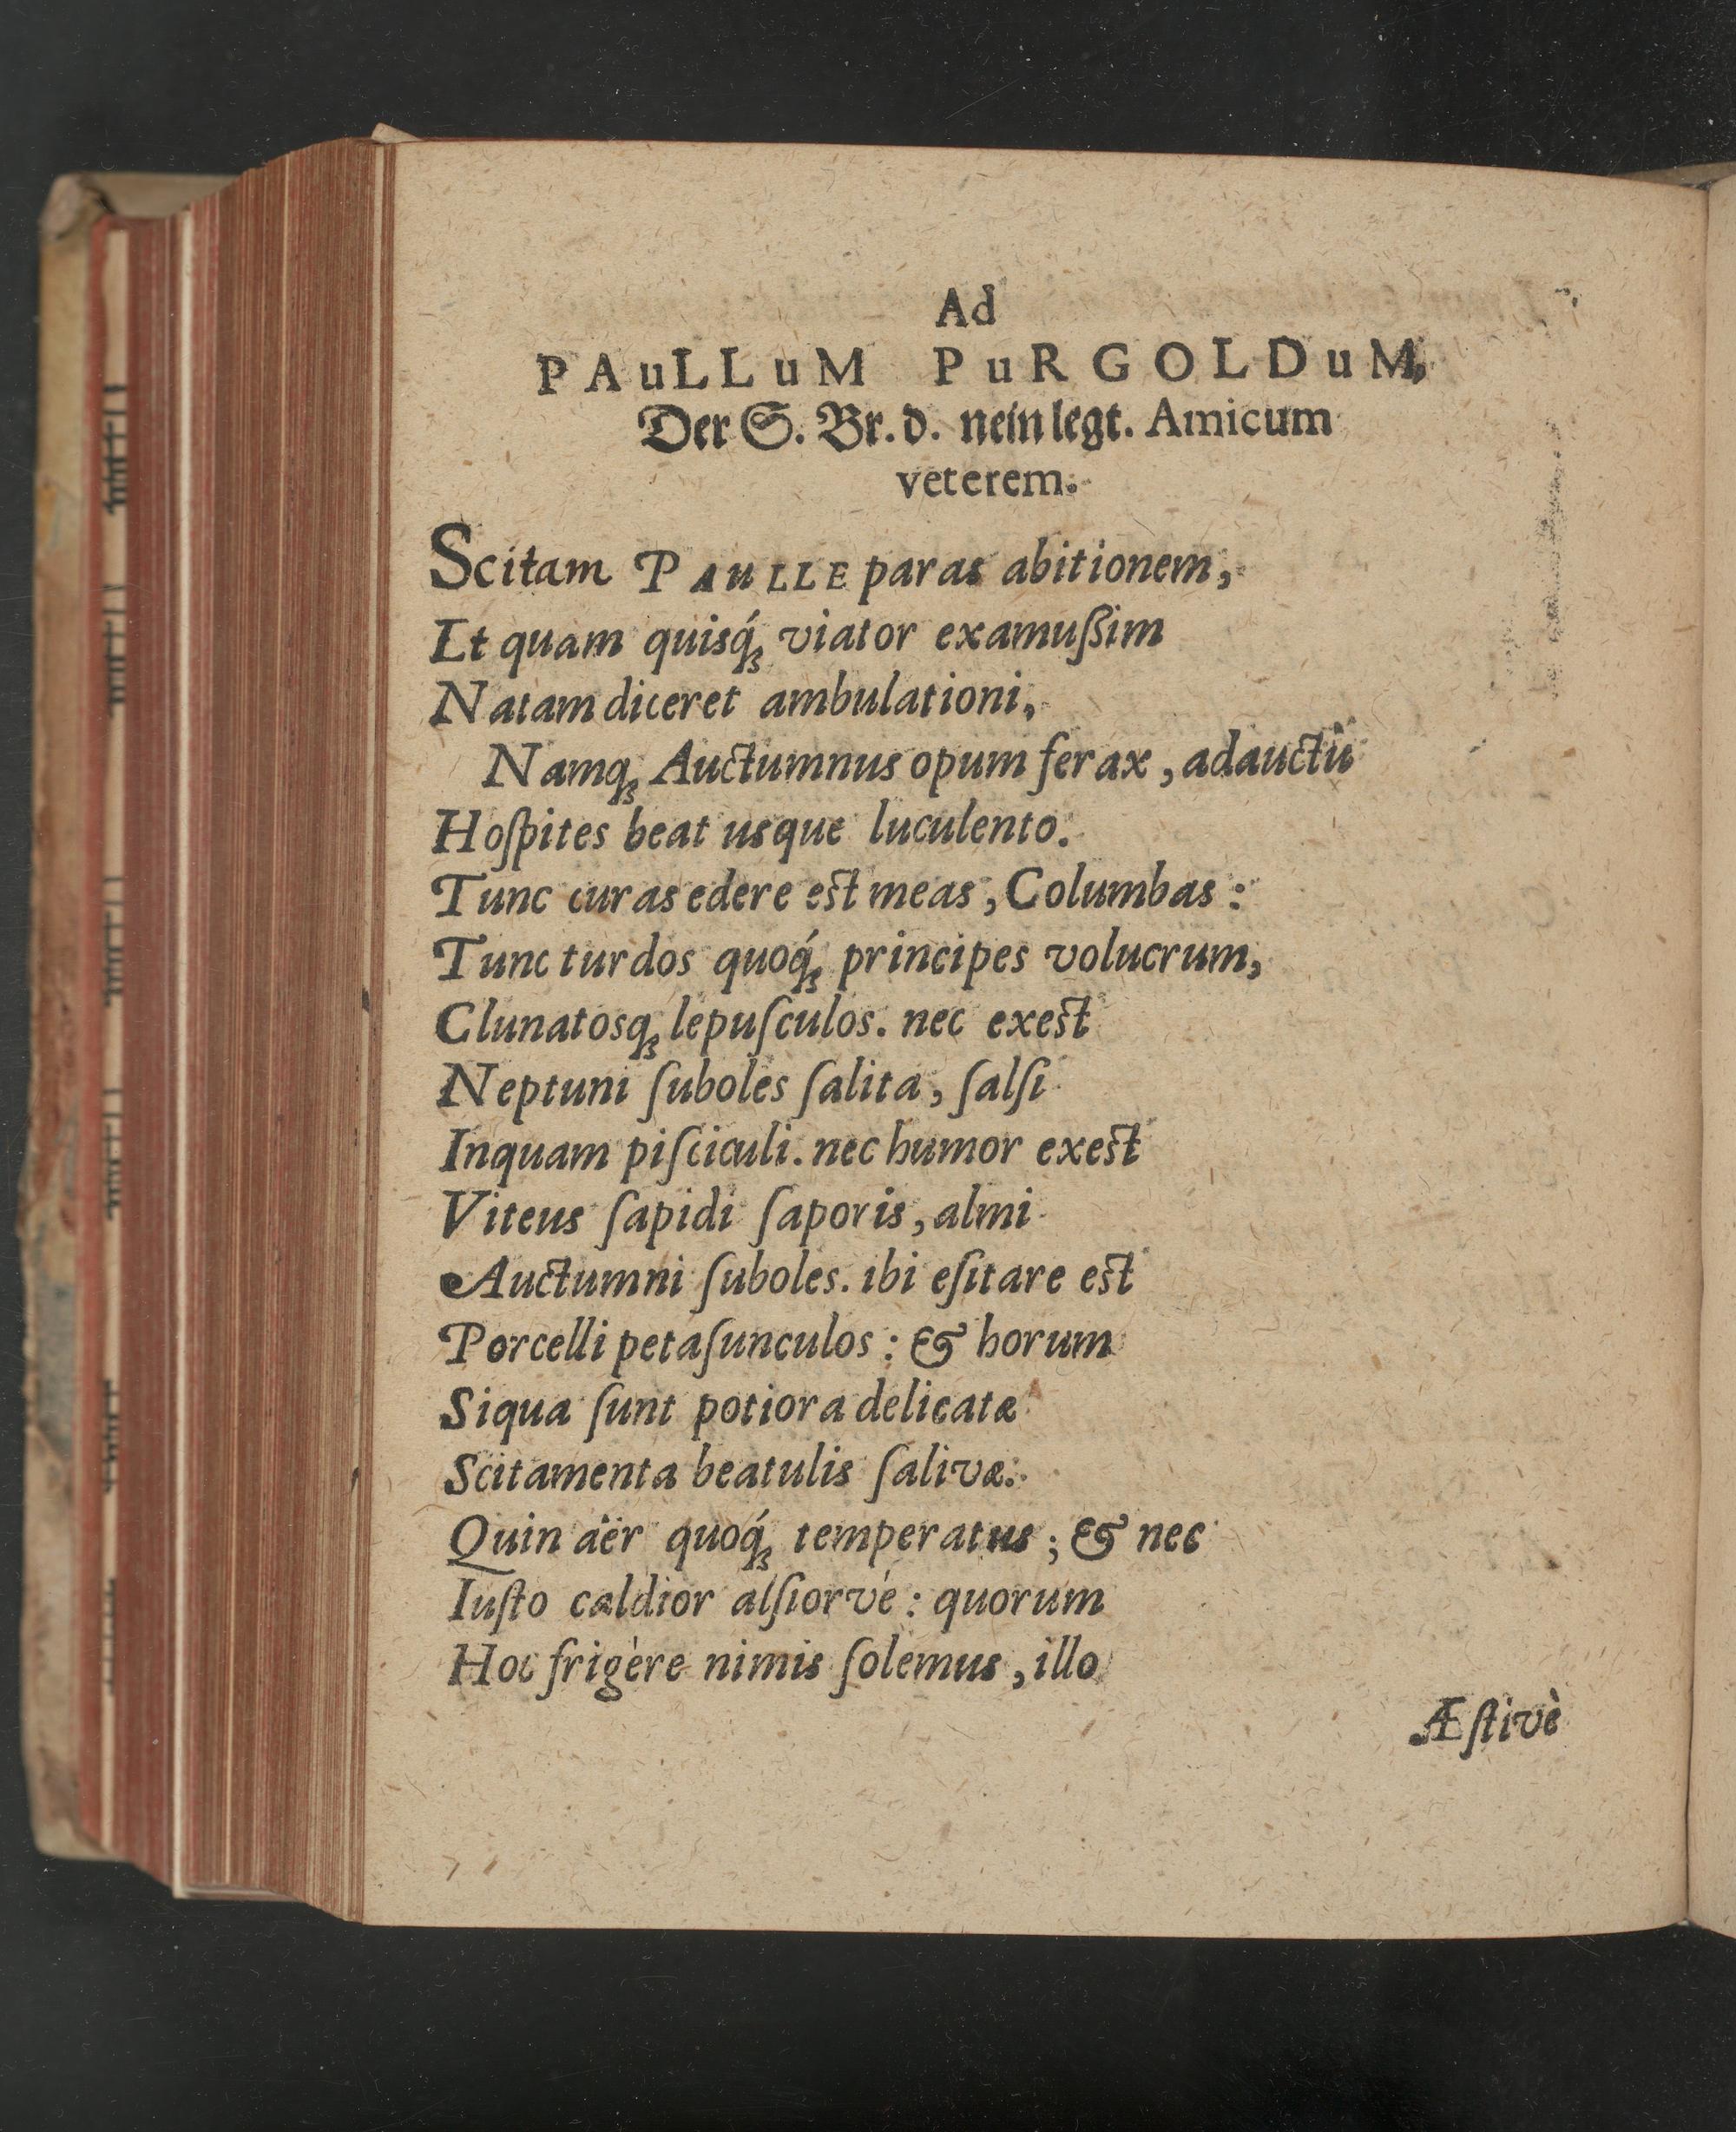 Ad
PAuLLuM PuRGOLDuM,
Der S. Br. d. nein legt. Amicum
veterem.
Scitam PAuLLE paras abitionem,
Et quam quisq́ꝫ viator examuſſim
Natam diceret ambulationi,
Namqꝫ Auctumnus opum ferax, adauctù
Hoſpites beat usque luculento.
Tunc curas edere est meas, Columbas:
Tunc turdos quoq́ꝫ principes volucrum,
Clunatosqꝫ lepuſculos. nec exest
Neptuni ſuboles ſalita, ſalſi
Inquam piſciculi. nec humor exest
Viteus ſapidi ſaporis, almi
Auctumni ſuboles. ibi eſitare est
Porcelli petaſunculos: & horum
Siqua ſunt potiora delicatæ
Scitamenta beatulis ſalivæ.
Quin aër quoq́ꝫ temperatus; & nec
Iuſto caldior alſiorvé: quorum
Hoc frigère nimis ſolemus, illo
Æſtivè